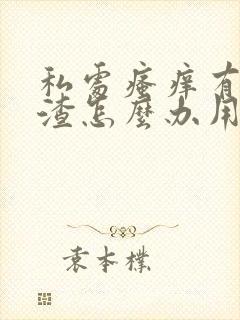 私處瘙痒有
渣怎麼办用
袁本樸